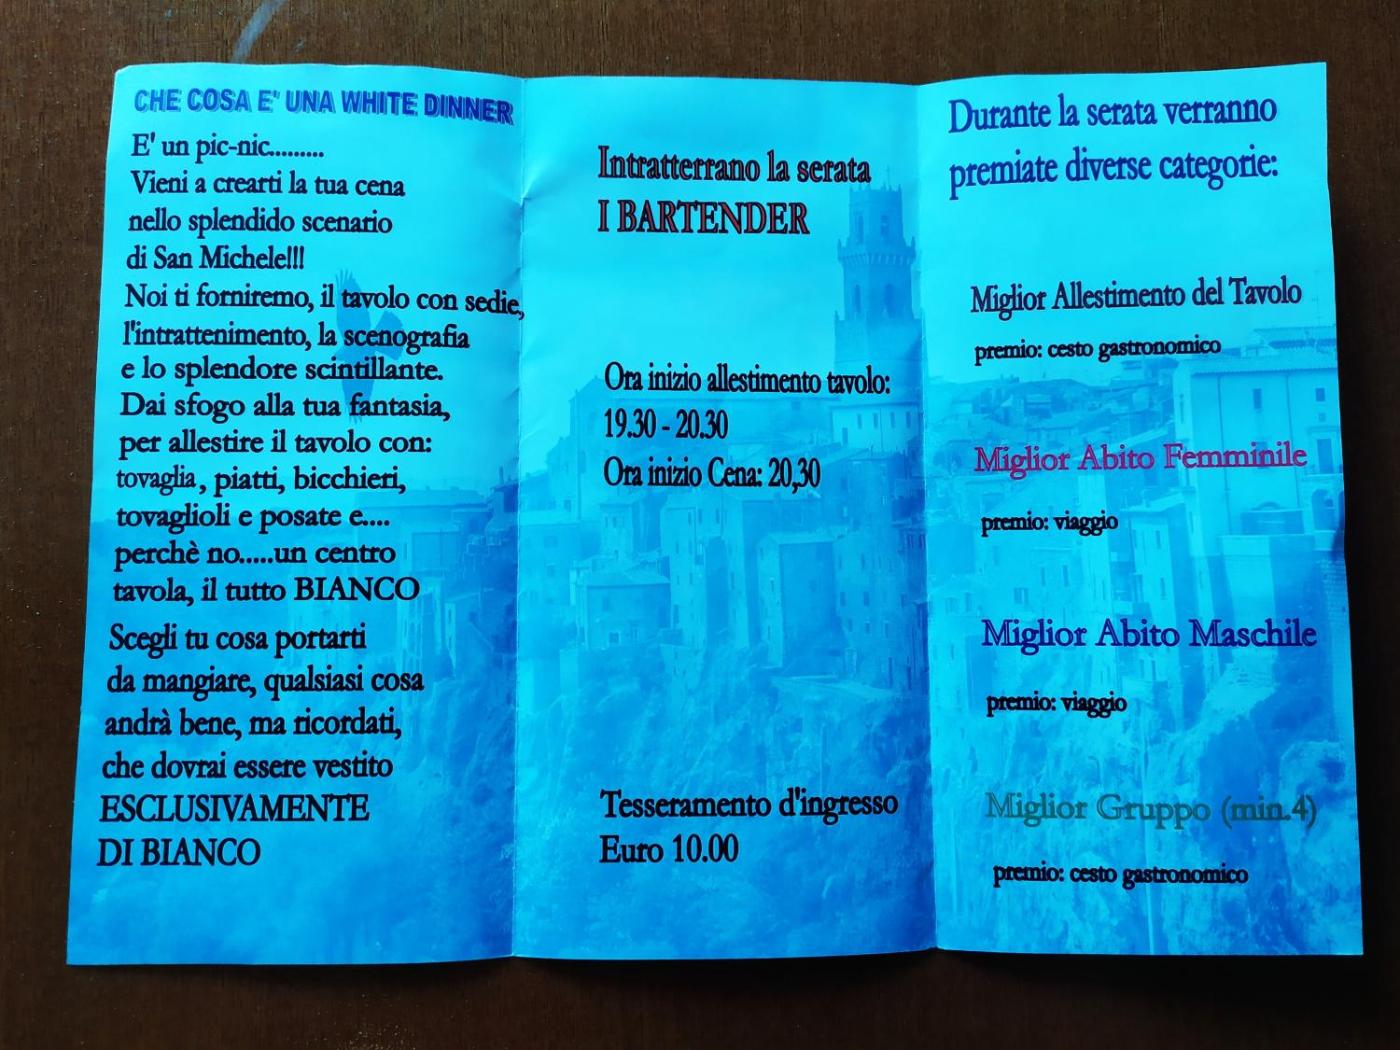 CHE COSA E' UNA WHITE DINNER
E' un pic-nic.........
Vieni a crearti la tua cena
nello splendido scenario
di San Michele!!!
Noi ti forniremo, il tavolo con sedie,
l'intrattenimento, la scenografia
e lo splendore scintillante.
Dai sfogo alla tua fantasia,
per allestire il tavolo con:
tovaglia, piatti, bicchieri,
tovaglioli e posate e....
perchè no.....un centro
tavola, il tutto BIANCO
Scegli tu cosa portarti
da mangiare, qualsiasi cosa
andrà bene, ma ricordati,
che dovrai essere vestito
ESCLUSIVAMENTE
DI BIANCO
Intratterrano la serata
I BARTENDER
Ora inizio allestimento tavolo:
19.30 - 20.30
Ora inizio Cena: 20,30
Tesseramento d'ingresso
Euro 10.00
Durante la serata verranno
premiate diverse categorie:
Miglior Allestimento del Tavolo
premio: cesto gastronomico
Miglior Abito Femminile
premio: viaggio
Miglior Abito Maschile
premio: viaggio
Miglior Gruppo (min.4)
premio: cesto gastronomico